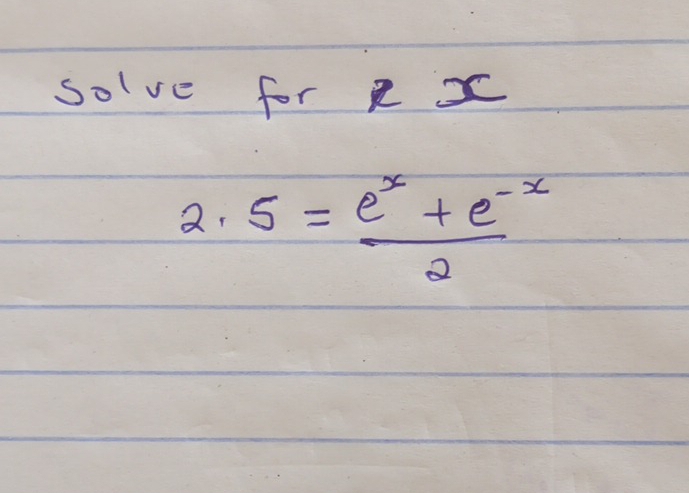 solve for x
2.5 = (e^x + e^-x)/2